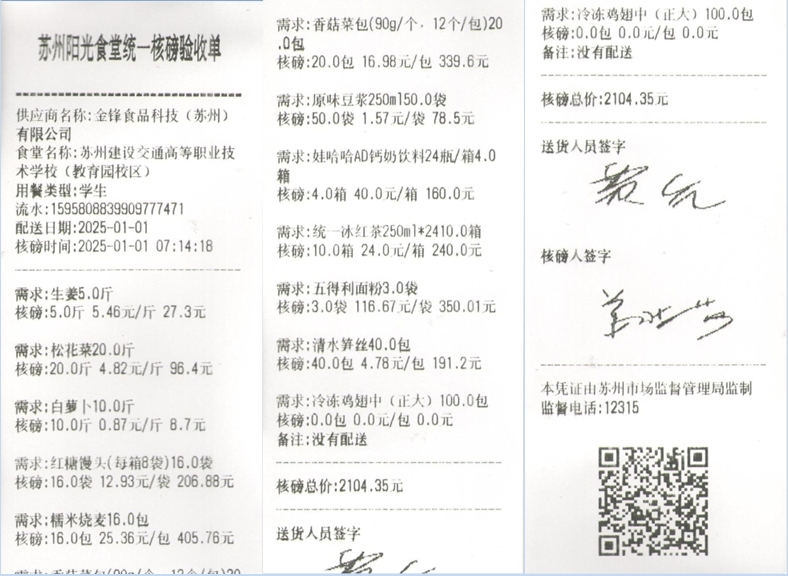 苏州阳光食堂统一核磅验收单
供应商名称:金锋食品科技（苏州）
有限公司
食堂名称:苏州建设交通高等职业技
术学校（教育园校区）
用餐类型:学生
流水:1595808839909777471
配送日期:2025-01-01
核磅时间:2025-01-01 07:14:18
需求:生姜5.0斤
核磅:5.0斤 5.46元/斤 27.3元
需求:松花菜20.0斤
核磅:20.0斤 4.82元/斤 96.4元
需求:白萝卜10.0斤
核磅:10.0斤 0.87元/斤 8.7元
需求:红糖馒头(每箱8袋)16.0袋
核磅:16.0袋 12.93元/袋 206.88元
需求:糯米烧麦16.0包
核磅:16.0包 25.36元/包 405.76元
需求:香菇菜包(90g/个，12个/包)20
需求:香菇菜包(90g/个，12个/包)20
.0包
核磅:20.0包 16.98元/包 339.6元
需求:原味豆浆250ml50.0袋
核磅:50.0袋 1.57元/袋 78.5元
需求:娃哈哈AD钙奶饮料24瓶/箱4.0
箱
核磅:4.0箱 40.0元/箱 160.0元
需求:统一冰红茶250ml*2410.0箱
核磅:10.0箱 24.0元/箱 240.0元
需求:五得利面粉3.0袋
核磅:3.0袋 116.67元/袋 350.01元
需求:清水笋丝40.0包
核磅:40.0包 4.78元/包 191.2元
需求:冷冻鸡翅中（正大）100.0包
核磅:0.0包 0.0元/包 0.0元
备注:没有配送
核磅总价:2104.35元
送货人员签字
需求:冷冻鸡翅中（正大）100.0包
核磅:0.0包 0.0元/包 0.0元
备注:没有配送
核磅总价:2104.35元
送货人员签字
核磅人签字
本凭证由苏州市场监督管理局监制
监督电话:12315